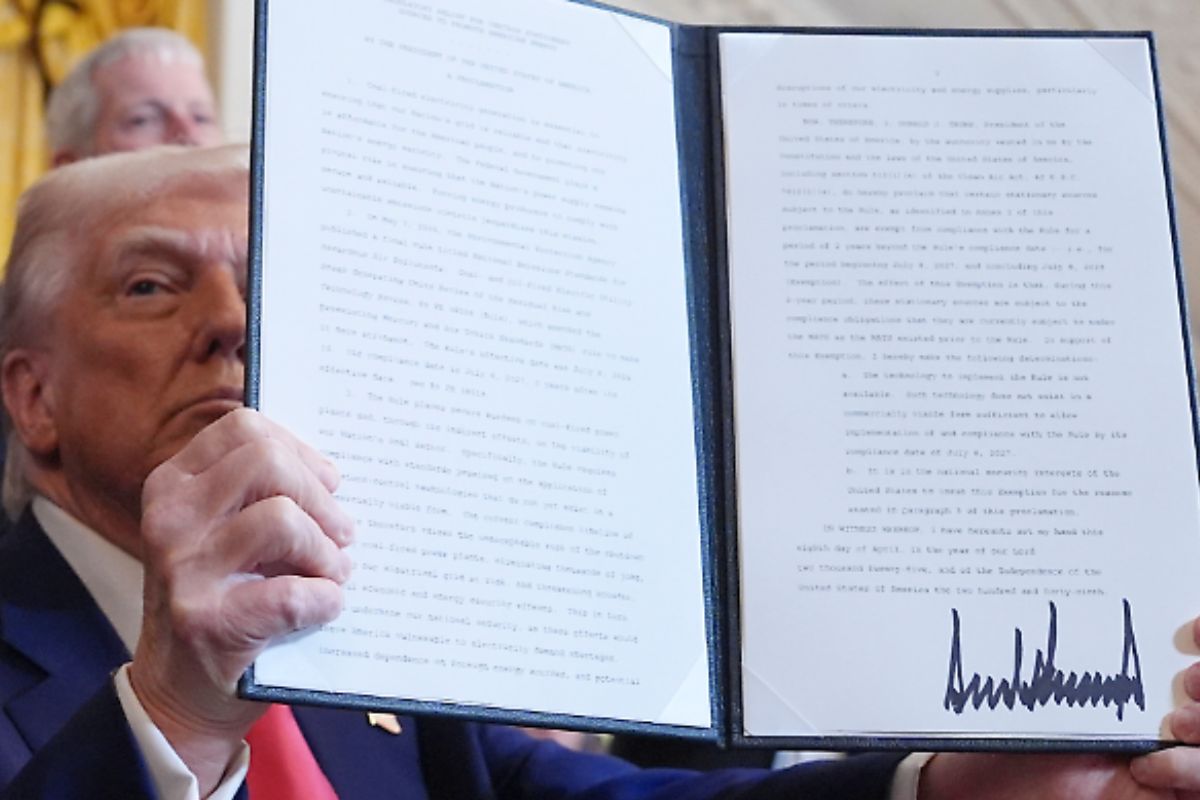 REGULATORY RELIEF FOR CERTAIN STATIONARY
SOURCES TO PROMOTE AMERICAN ENERGY
BY THE PRESIDENT OF THE UNITED STATES OF AMERICA
A PROCLAMATION
1. Coal-fired electricity generation is essential to
ensuring that our Nation's grid is reliable and that electricity
is affordable for the American people, and to promoting our
Nation's energy security. The Federal Government plays a
pivotal role in ensuring that the Nation's power supply remains
secure and reliable. Forcing energy producers to comply with
unattainable emissions controls jeopardizes this mission.
2. On May 7, 2024, the Environmental Protection Agency
published a final rule titled National Emission Standards for
Hazardous Air Pollutants: Coal- and Oil-Fired Electric Utility
Steam Generating Units Review of the Residual Risk and
Technology Review, 89 FR 38508 (Rule), which amended the
preexisting Mercury and Air Toxics Standards (MATS) rule to make
it more stringent. The Rule's effective date was July 8, 2024.
Id. Its compliance date is July 8, 2027, 3 years after its
effective date. See 89 FR 38519.
3. The Rule places severe burdens on coal-fired power
plants and, through its indirect effects, on the viability of
our Nation's coal sector. Specifically, the Rule requires
compliance with standards premised on the application of
emissions-control technologies that do not yet exist in a
commercially viable form. The current compliance timeline of
therefore raises the unacceptable risk of the shutdown
coal-fired power plants, eliminating thousands of jobs,
our electrical grid at risk, and threatening broader,
economic and energy security effects. This in turn
undermine our national security, as these effects would
leave America vulnerable to electricity demand shortages,
increased dependence on foreign energy sources, and potential
2
disruptions of our electricity and energy supplies, particularly
in times of crisis.
NOW, THEREFORE, I, DONALD J. TRUMP, President of the
United States of America, by the authority vested in me by the
Constitution and the laws of the United States of America,
including section 112(i)(4) of the Clean Air Act, 42 U.S.C.
7412(i)(4), do hereby proclaim that certain stationary sources
subject to the Rule, as identified in Annex I of this
proclamation, are exempt from compliance with the Rule for a
period of 2 years beyond the Rule's compliance date -- i.e., for
the period beginning July 8, 2027, and concluding July 8, 2029
(Exemption). The effect of this Exemption is that, during this
2-year period, these stationary sources are subject to the
compliance obligations that they are currently subject to under
the MATS as the MATS existed prior to the Rule. In support of
this Exemption, I hereby make the following determinations:
a. The technology to implement the Rule is not
available. Such technology does not exist in a
commercially viable form sufficient to allow
implementation of and compliance with the Rule by its
compliance date of July 8, 2027.
b. It is in the national security interests of the
United States to issue this Exemption for the reasons
stated in paragraph 3 of this proclamation.
IN WITNESS WHEREOF, I have hereunto set my hand this
eighth day of April, in the year of our Lord
two thousand twenty-five, and of the Independence of the
United States of America the two hundred and forty-ninth.